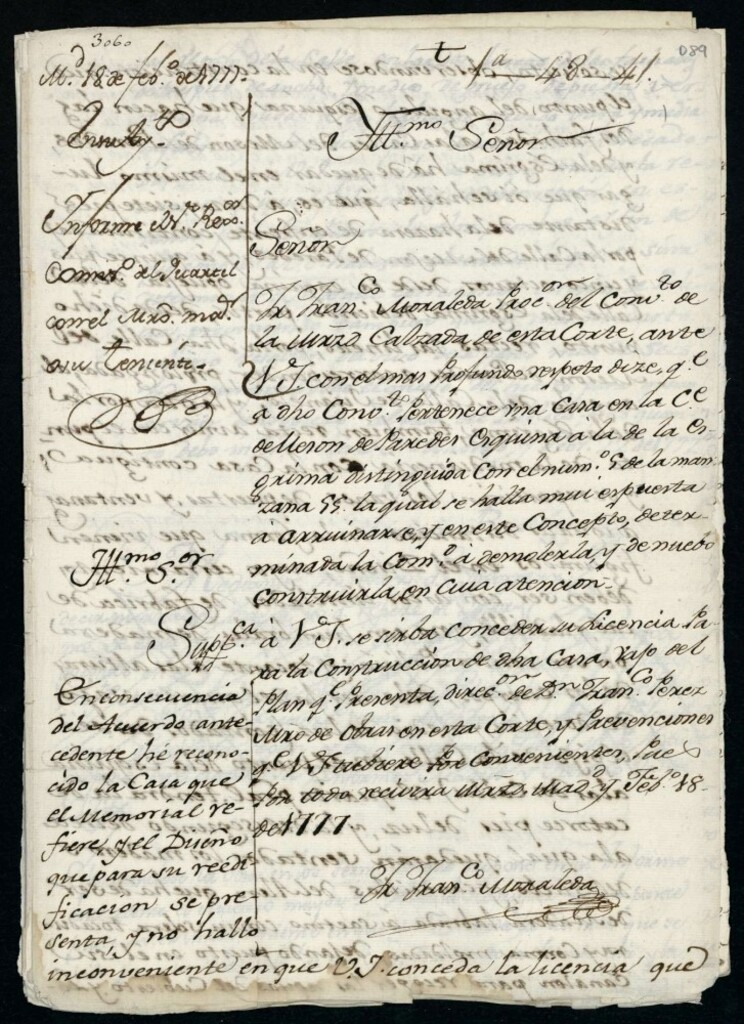 3060
089
t
M.d 18 de feb.º de 1777.
1ª 48-41.
En su Ay.to
Informe el S.r Rexor
Comis.º del Quartel
con el Mro. mor.
o su teniente.
Ill.mo Señor
Señor
Fr. Fran.co Moraleda Proc.or del Conv.to de
la Mrzd Calzada de esta Corte, ante
V. I. con el mas Profundo respeto dize, q.e
a dho Conv.to Pertenece vna Casa en la C.e
del Meson de Paredes Esquina à la de la Es-
grima distinguida Con el num.º 5 de la man-
zana 55. la qual se halla mui espuesta
à arruinarse, y en este Concepto, deter-
minada la Com.d à demolerla, y de nuebo
construirla, en Cuia atencion-
Ill.mo S.or
Supp.ca à V. I. se sirba Conceder su Licencia Pa-
ra la Construccion de dha Casa, vajo del
Plan q.e Presenta, direc.on de Dn Fran.co Perez
Mro de Obras en esta Corte, y Prevenciones
q.e V. I. tubiere Por Convenientes, que
Por todo recivira Mrzd. Mad.d y Feb.º 18-
de 1777.
Fr. Fran.co Moraleda
En consecuencia
del Acuerdo ante-
cedente hè recono-
cido la Casa que
el Memorial re-
fiere, y el Diseño
que para su reedi-
ficacion se pre-
senta, y no hallo
inconveniente en que V. I. conceda la licencia que